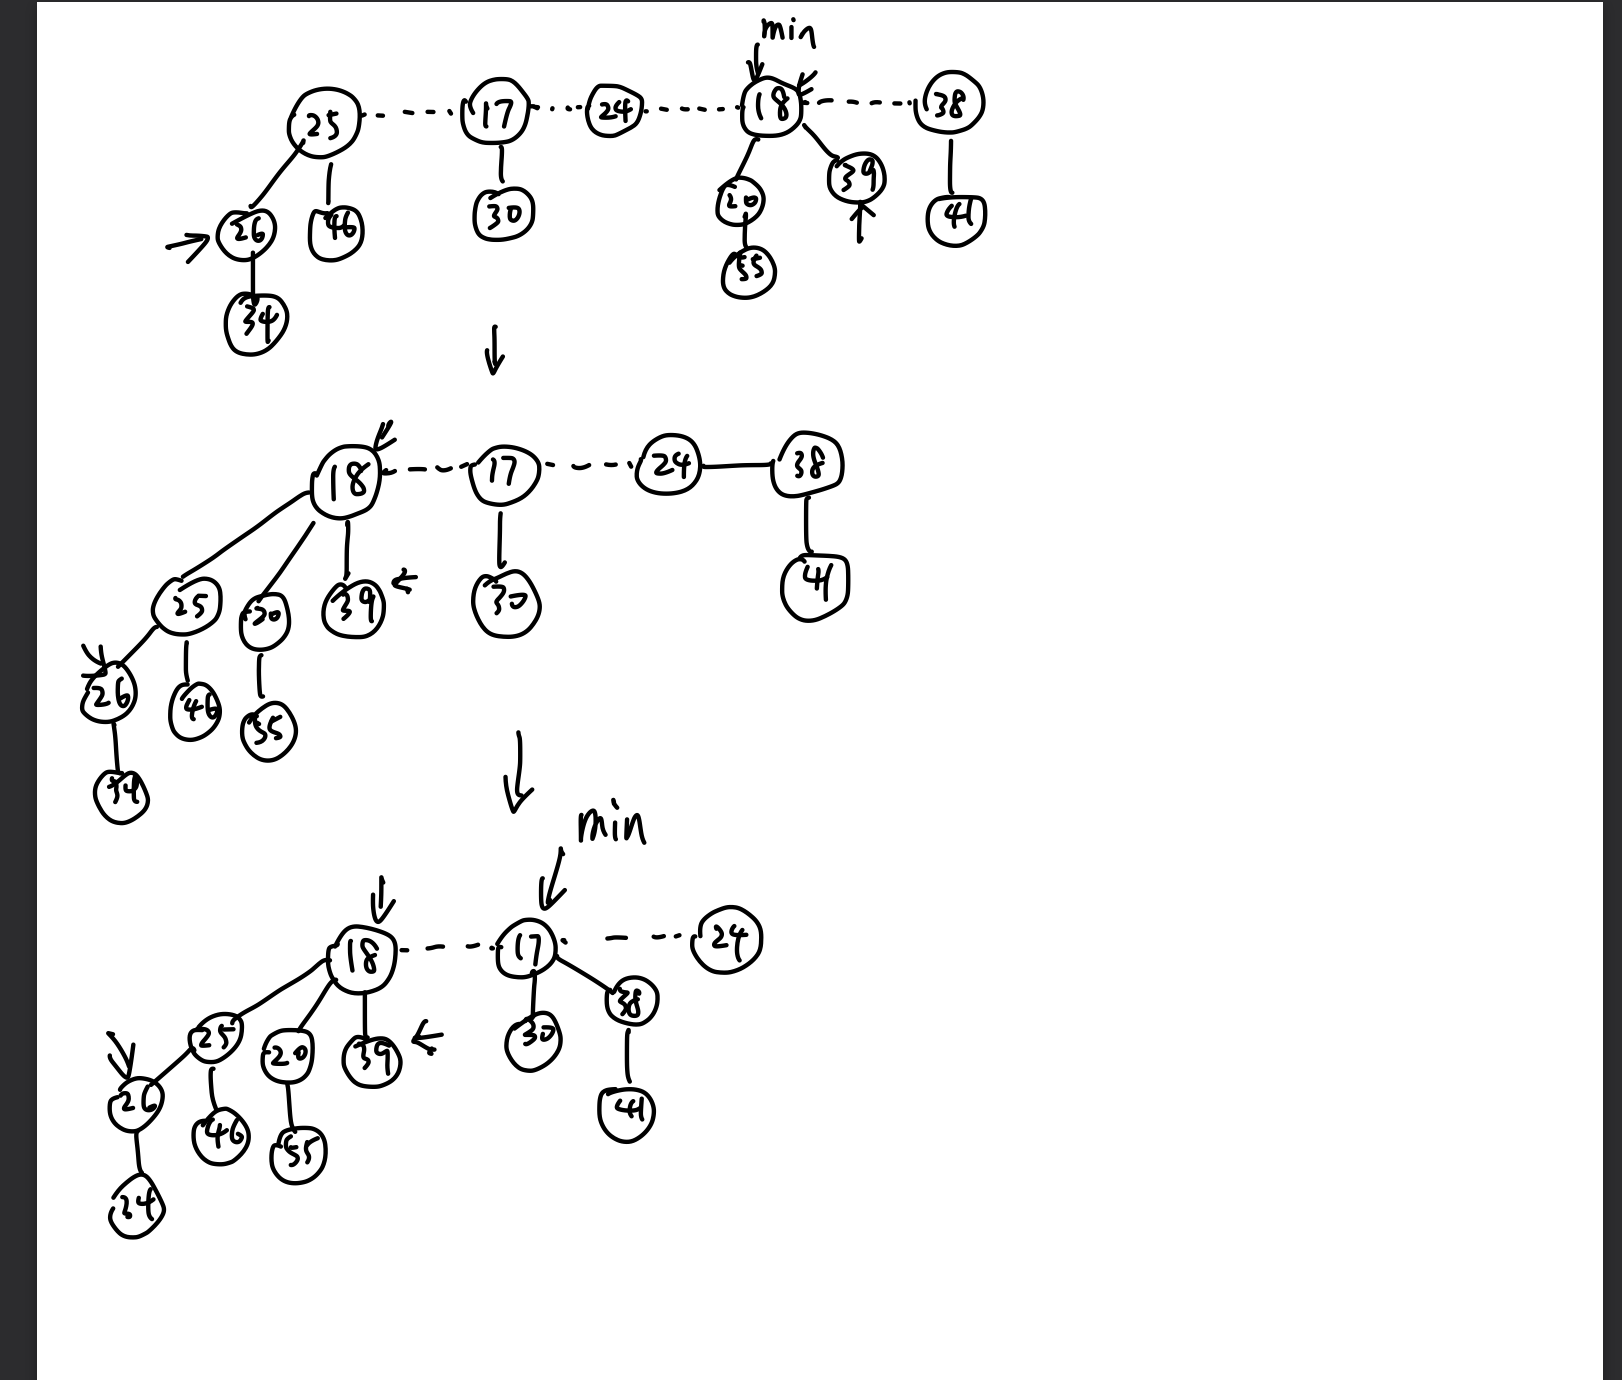 min
25 17 24 18 38
26 46 30 20 39 41
34 55
18 17 24 38
25 20 39 30 41
26 46 55
34
min
18 17 24
25 20 39 30 38
26 46 55 41
34